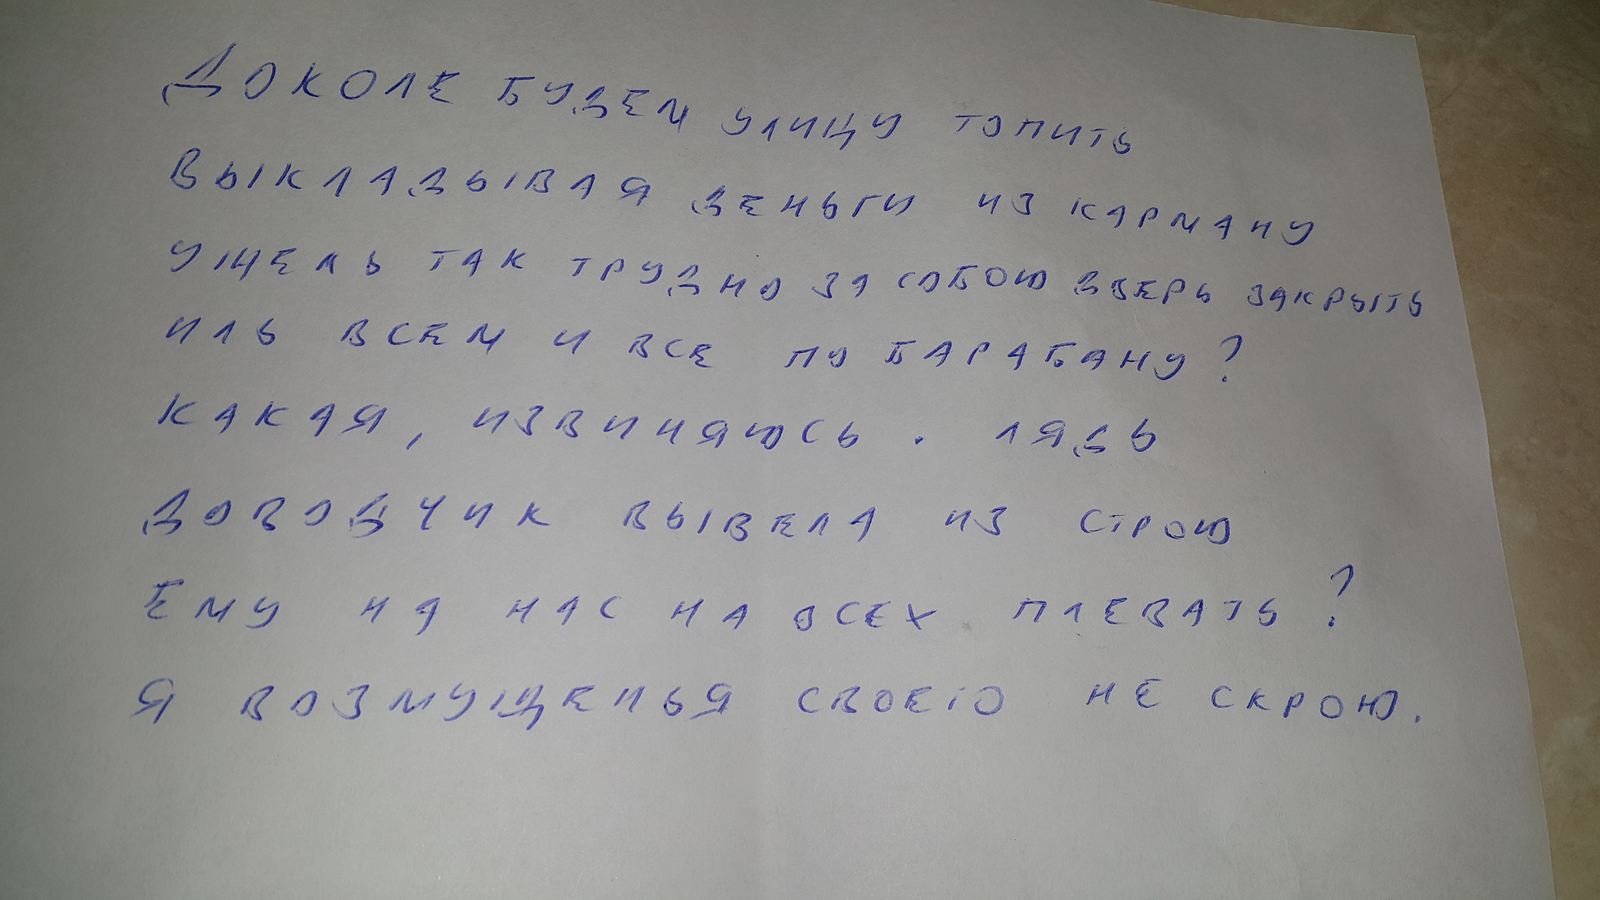 Доколе будем улицу топить
Выкладывая деньги из карману
ужель так трудно за собою дверь закрыть
иль всем и все по барабану?
какая, извиняюсь . лядь
доводчик вывела из строю
Ему на нас на всех плевать?
Я возмущенья своего не скрою.